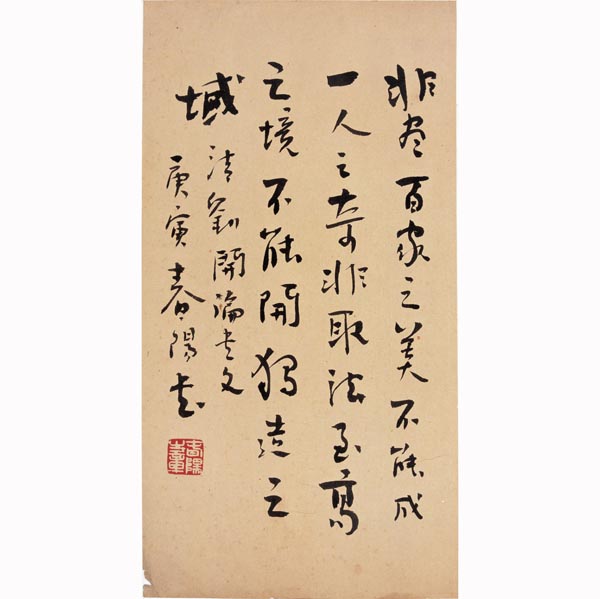 非盡百家之美不能成
一人之奇非取法至高
之境不能開獨造之
域 清劉開論書文
庚寅春陽書